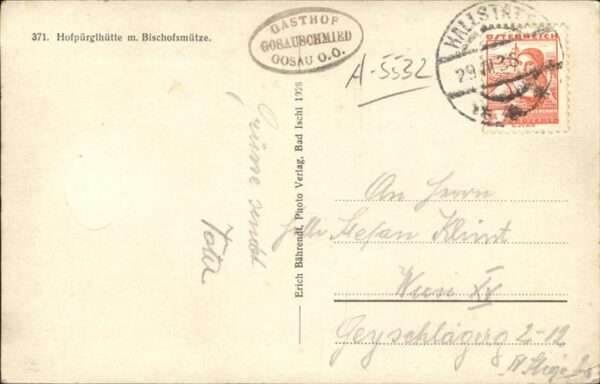 371. Hofpürglhütte m. Bischofsmütze.
GASTHOF
GOSAUSCHMIED
GOSAU O.O.
A-5532
HALLSTATT
29.VII.36
ÖSTERREICH
Grüsse sendet
Erich Bährendt, Photo Verlag, Bad Ischl 1928
An Herrn
Stefan Klint
Wien XV
Geyschlägerg 2-12